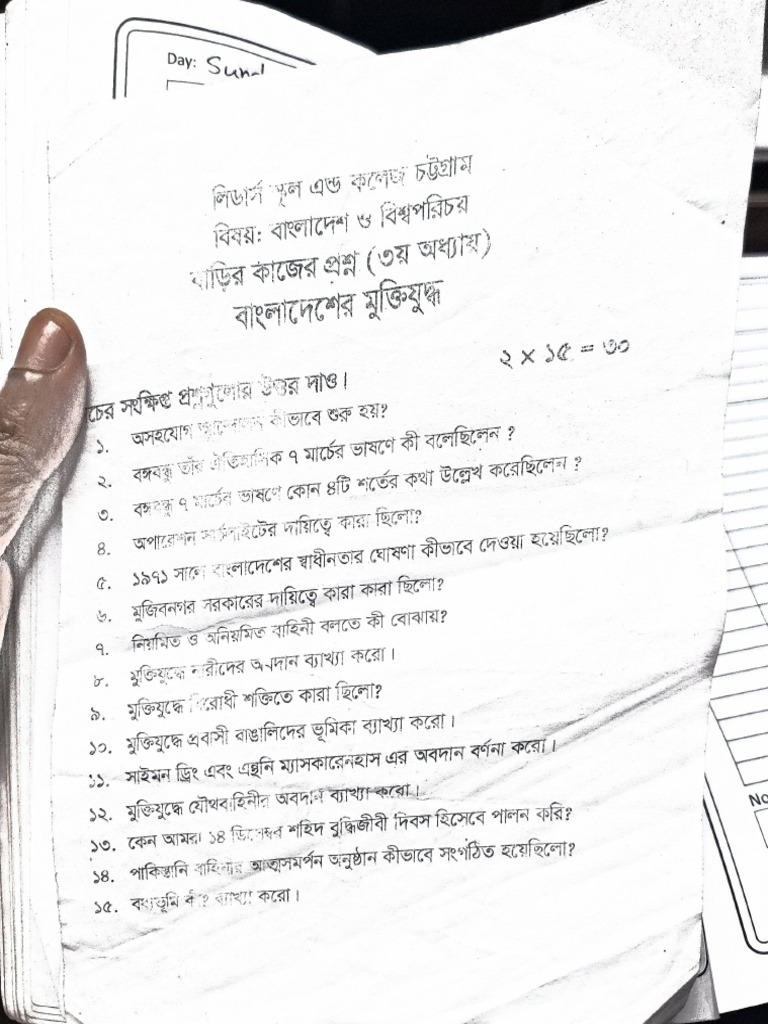 Day: Sund
লিডার্স স্কুল এন্ড কলেজ চট্টগ্রাম
বিষয়: বাংলাদেশ ও বিশ্বপরিচয়
বাড়ির কাজের প্রশ্ন (৩য় অধ্যায়)
বাংলাদেশের মুক্তিযুদ্ধ
২ × ১৫ = ৩০
চের সংক্ষিপ্ত প্রশ্নগুলোর উত্তর দাও।
১. অসহযোগ আন্দোলন কীভাবে শুরু হয়?
২. বঙ্গবন্ধু তাঁর ঐতিহাসিক ৭ মার্চের ভাষণে কী বলেছিলেন ?
৩. বঙ্গবন্ধু ৭ মার্চের ভাষণে কোন ৪টি শর্তের কথা উল্লেখ করেছিলেন ?
৪. অপারেশন সার্চলাইটের দায়িত্বে কারা ছিলো?
৫. ১৯৭১ সালে বাংলাদেশের স্বাধীনতার ঘোষণা কীভাবে দেওয়া হয়েছিলো?
৬. মুজিবনগর সরকারের দায়িত্বে কারা কারা ছিলো?
৭. নিয়মিত ও অনিয়মিত বাহিনী বলতে কী বোঝায়?
৮. মুক্তিযুদ্ধে নারীদের অবদান ব্যাখ্যা করো।
৯. মুক্তিযুদ্ধে বিরোধী শক্তিতে কারা ছিলো?
১০. মুক্তিযুদ্ধে প্রবাসী বাঙালিদের ভূমিকা ব্যাখ্যা করো।
১১. সাইমন ড্রিং এবং এন্থনি ম্যাসকারেনহাস এর অবদান বর্ণনা করো।
১২. মুক্তিযুদ্ধে যৌথবাহিনীর অবদান ব্যাখ্যা করো।
১৩. কেন আমরা ১৪ ডিসেম্বর শহিদ বুদ্ধিজীবী দিবস হিসেবে পালন করি?
১৪. পাকিস্তানি বাহিনীর আত্মসমর্পন অনুষ্ঠান কীভাবে সংগঠিত হয়েছিলো?
১৫. বধ্যভূমি কী? ব্যাখ্যা করো।